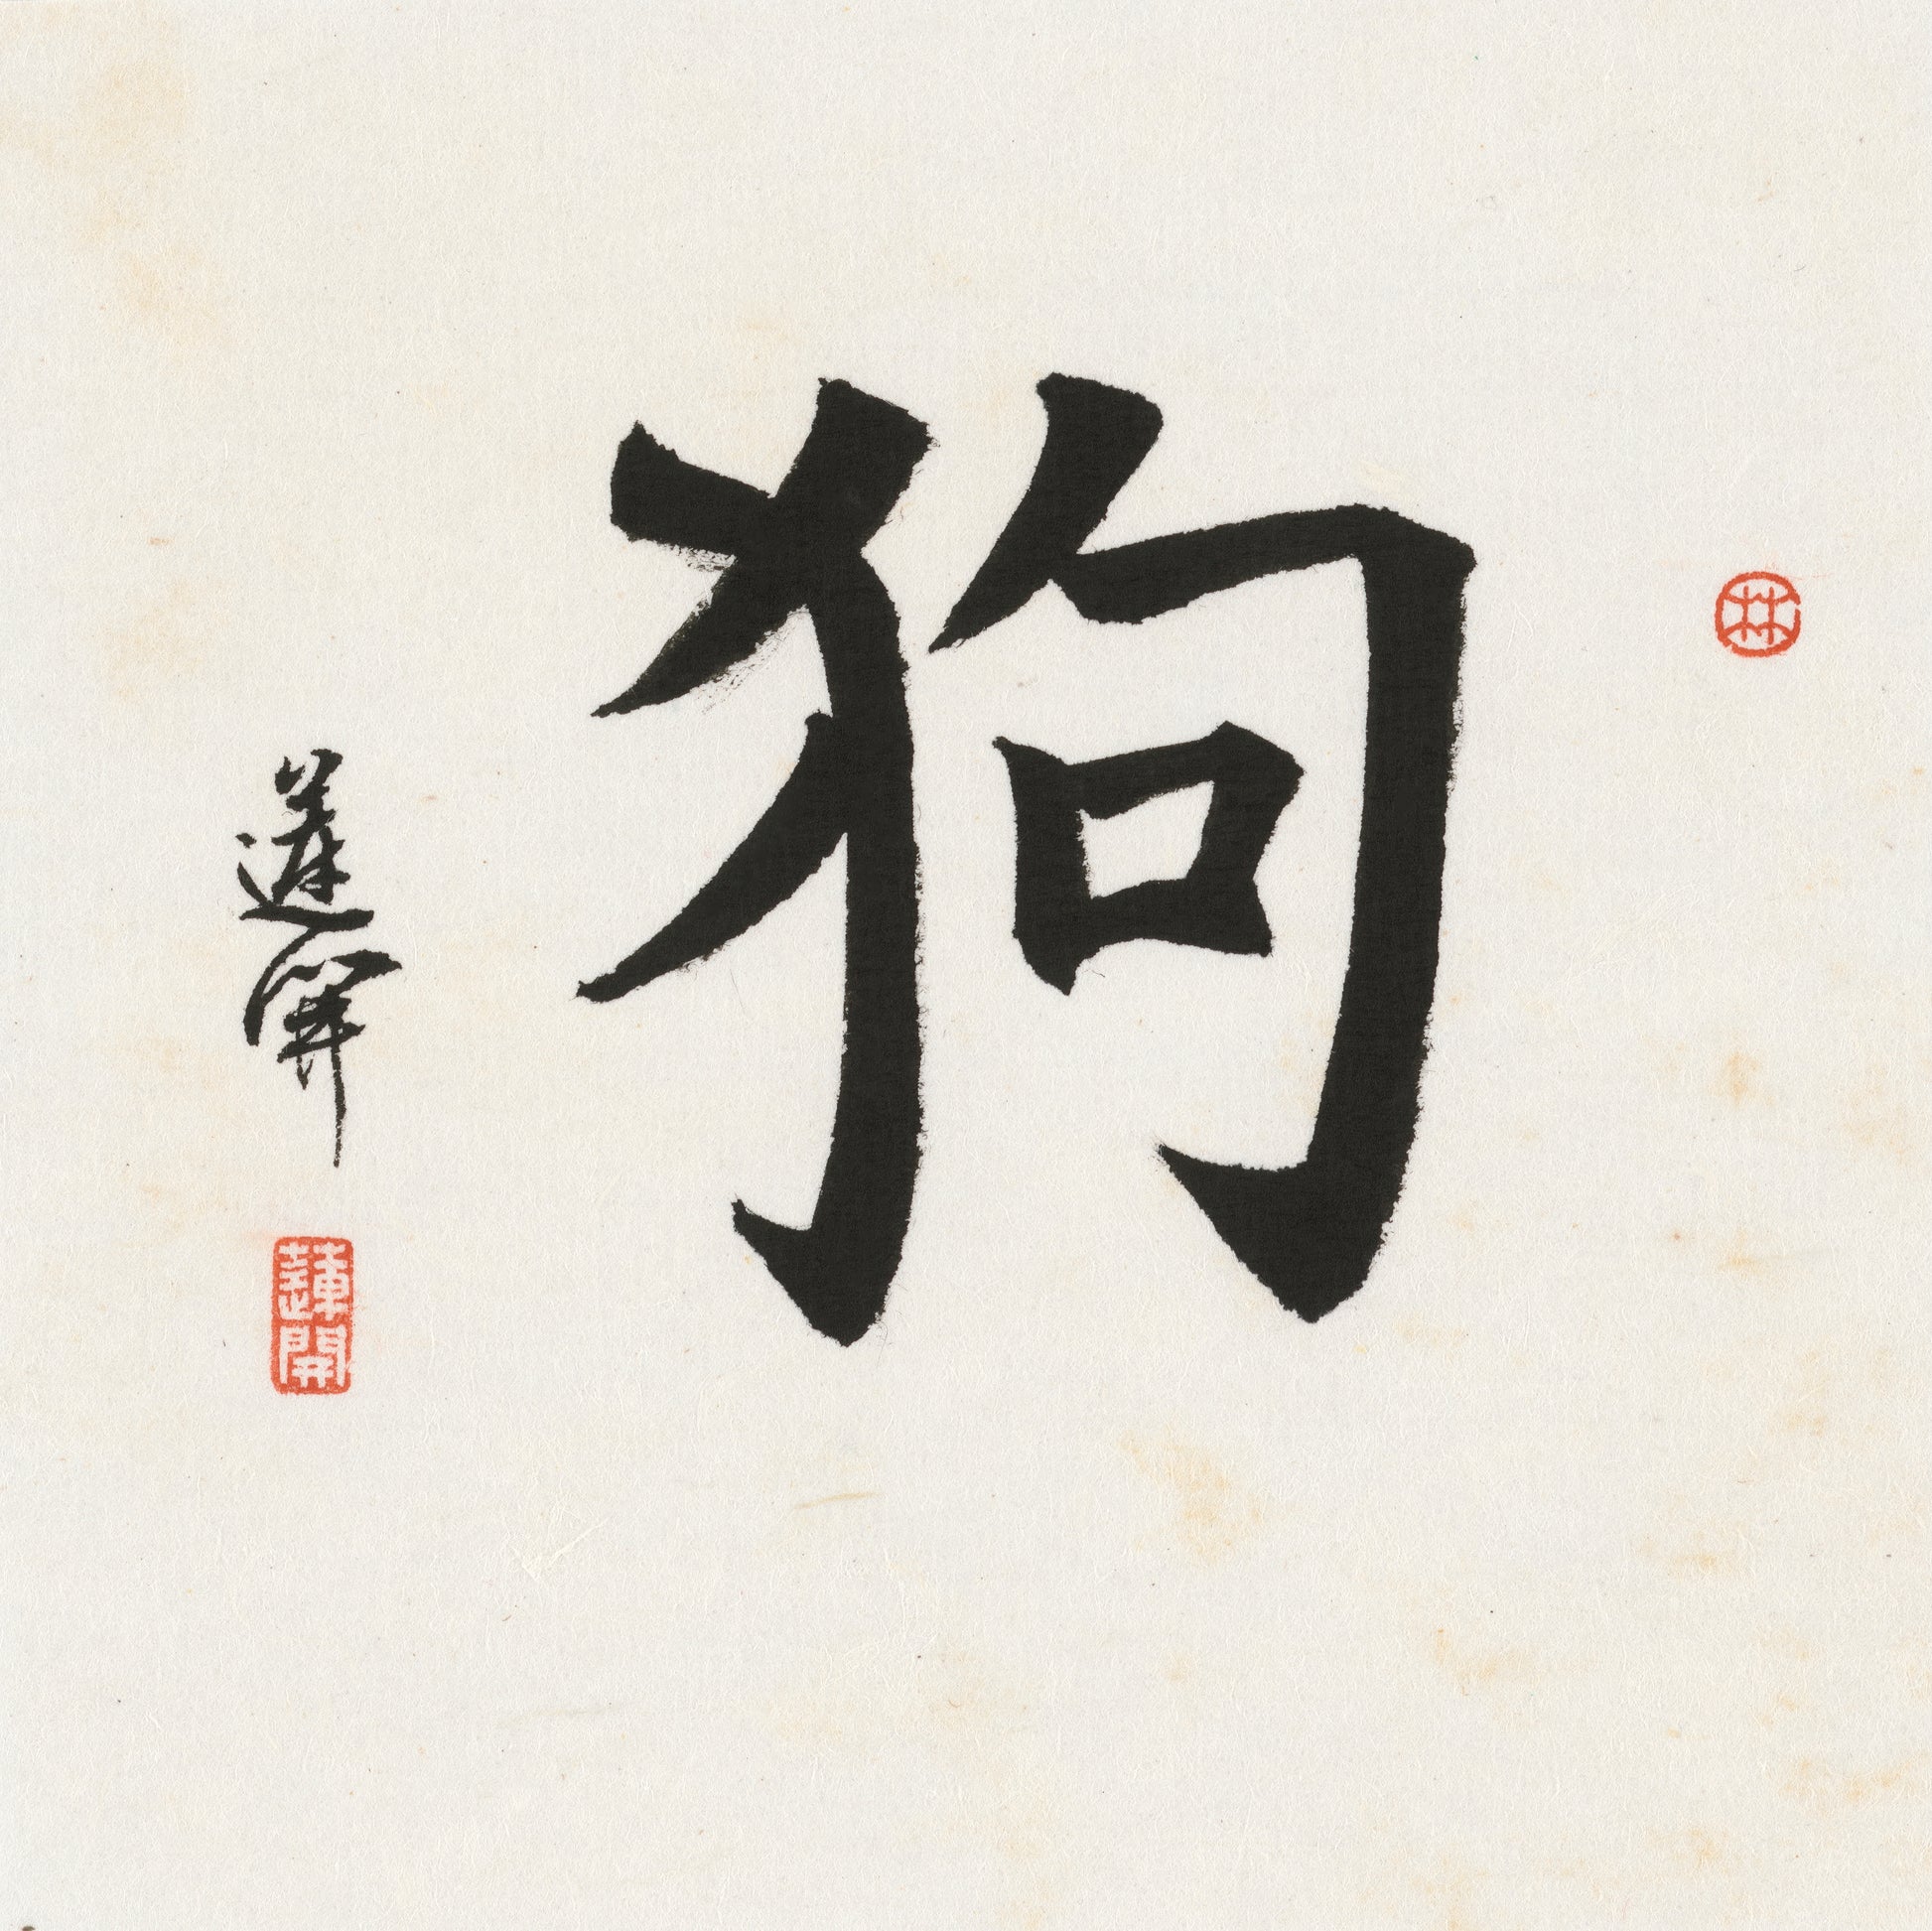 林
狗
蓮開
蓮開